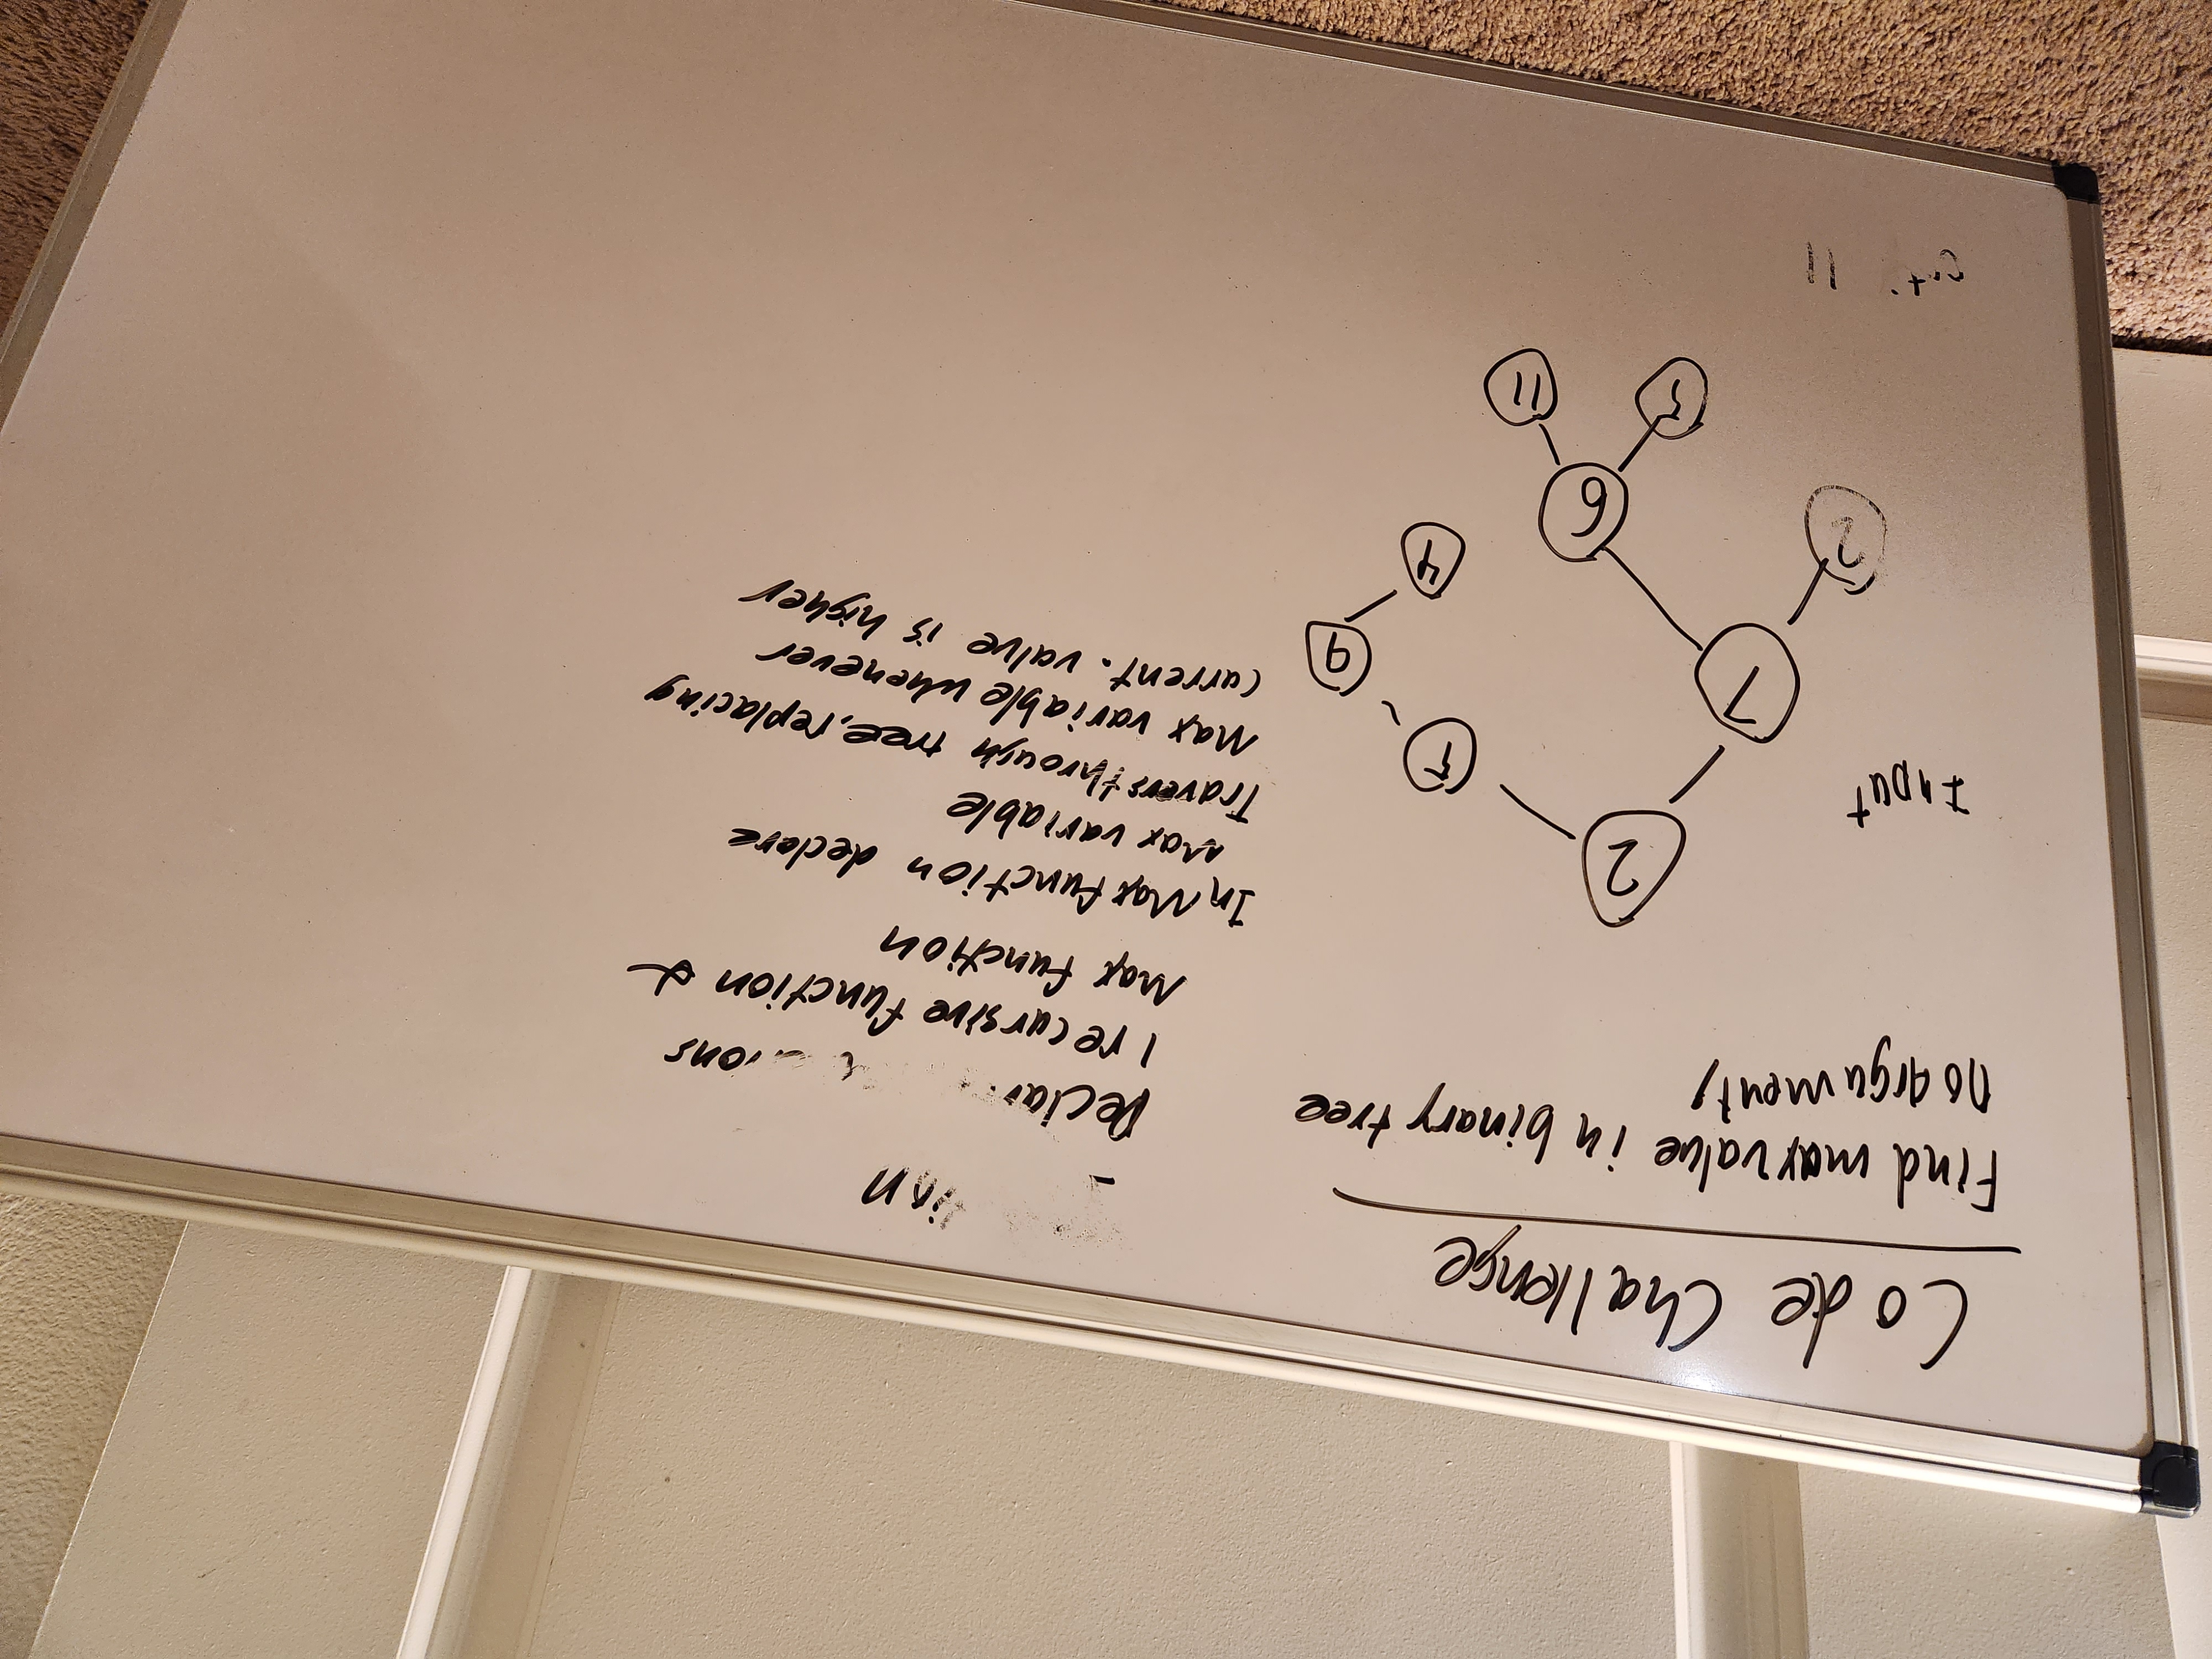 Code Challenge
Find max value in binary tree
no arguments
Input
2
7
5
9
2
6
4
5
11
11
1 recursive function &
Max function
In Max function declare
Max variable
Travers through tree, replacing
Max variable whenever
current. value is higher